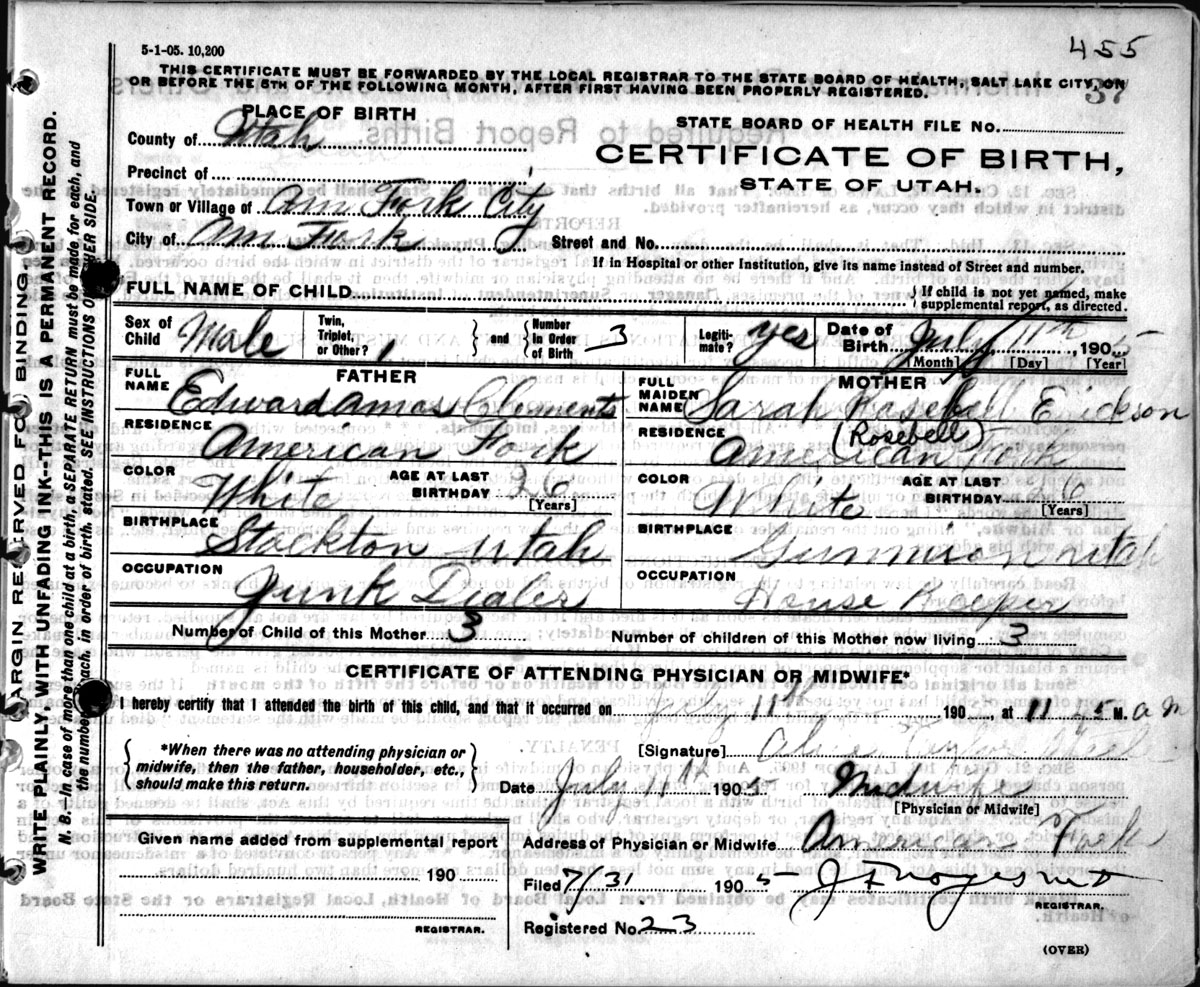 5-1-05. 10,200
455
THIS CERTIFICATE MUST BE FORWARDED BY THE LOCAL REGISTRAR TO THE STATE BOARD OF HEALTH, SALT LAKE CITY, ON
OR BEFORE THE 5TH OF THE FOLLOWING MONTH, AFTER FIRST HAVING BEEN PROPERLY REGISTERED.
37
PLACE OF BIRTH
STATE BOARD OF HEALTH FILE No.
County of Utah
CERTIFICATE OF BIRTH,
Precinct of
STATE OF UTAH.
Town or Village of Am Fork City
City of Am Fork Street and No.
If in Hospital or other Institution, give its name instead of Street and number.
FULL NAME OF CHILD { If child is not yet named, make supplemental report, as directed.
Sex of Child Male Twin, Triplet, or Other? } and { Number in Order of Birth 3 Legitimate? yes Date of Birth July 11th, 1905
[Month] [Day] [Year]
FATHER
FULL NAME Edward Amos Clements
RESIDENCE American Fork
COLOR White AGE AT LAST BIRTHDAY 36 [Years]
BIRTHPLACE Stockton Utah
OCCUPATION Junk Dealer
MOTHER
FULL MAIDEN NAME Sarah Rosebell Erickson
(Rosebell)
RESIDENCE American Fork
COLOR White AGE AT LAST BIRTHDAY 26 [Years]
BIRTHPLACE Gunnison Utah
OCCUPATION House Keeper
Number of Child of this Mother 3 Number of children of this Mother now living 3
CERTIFICATE OF ATTENDING PHYSICIAN OR MIDWIFE*
I hereby certify that I attended the birth of this child, and that it occurred on July 11th 190, at 11 45 M. a m
{ *When there was no attending physician or midwife, then the father, householder, etc., should make this return. }
[Signature] Taylor
Date July 11th 1905 Midwife
[Physician or Midwife]
Given name added from supplemental report
190
REGISTRAR.
Address of Physician or Midwife American Fork
Filed 7/31 1905 J F Noyes MD
REGISTRAR.
Registered No. 23
(OVER)
MARGIN RESERVED FOR BINDING.
WRITE PLAINLY, WITH UNFADING INK--THIS IS A PERMANENT RECORD.
N. B.--In case of more than one child at a birth, a SEPARATE RETURN must be made for each, and
the number of each, in order of birth, stated. SEE INSTRUCTIONS ON OTHER SIDE.